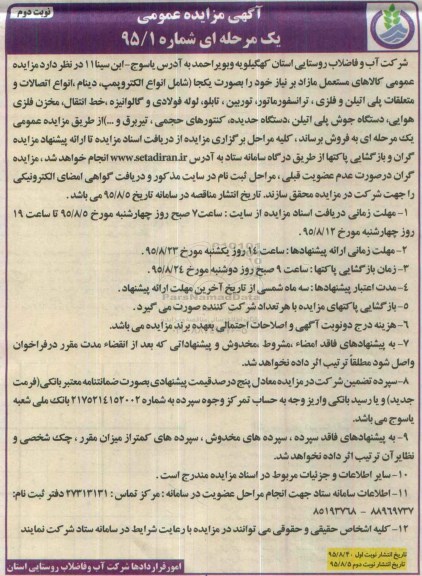 آگهی مزایده عمومی
نوبت دوم
یک مرحله ای شماره ۹۵/۱
شرکت آب و فاضلاب روستایی استان کهگیلویه وبویراحمد به آدرس یاسوج-ابن سینا۱۱ در نظر دارد مزایده
عمومی کالاهای مستعمل مازاد بر نیاز خود را بصورت یکجا (شامل انواع الکتروپمپ، دینام ،انواع اتصالات و
متعلقات پلی اتیلن و فلزی ، ترانسفورماتور، توربین ، تابلو، لوله فولادی و گالوانیزه ،خط انتقال، مخزن فلزی
هوایی، دستگاه جوش پلی اتیلن ،دستگاه حدیده، کنتورهای حجمی ، تیربرق و ...)از طریق مزایده عمومی
یک مرحله ای به فروش برساند ، کلیه مراحل برگزاری مزایده از دریافت اسناد مزایده تا ارائه پیشنهاد مزایده
گران و بازگشایی پاکتها از طریق درگاه سامانه ستاد به آدرس www.setadiran.ir انجام خواهد شد ، مزایده
گران درصورت عدم عضویت قبلی ، مراحل ثبت نام در سایت مذکور و دریافت گواهی امضای الکترونیکی
را جهت شرکت در مزایده محقق سازند. تاریخ انتشار مناقصه در سامانه تاریخ ۹۵/۸/۵ می باشد.
۱- مهلت زمانی دریافت اسناد مزایده از سایت : ساعت۷ صبح روز چهارشنبه مورخ ۹۵/۸/۵ تا ساعت ۱۹
روز چهارشنبه مورخ ۹۵/۸/۱۲ .
۲- مهلت زمانی ارائه پیشنهادها : ساعت ۱۴ روز یکشنبه مورخ ۹۵/۸/۲۳.
۳- زمان بازگشایی پاکتها : ساعت ۹ صبح روز دوشنبه مورخ ۹۵/۸/۲۴ .
۴-مدت اعتبار پیشنهادها : سه ماه شمسی از تاریخ آخرین مهلت ارائه پیشنهاد .
۵- بازگشایی پاکتهای مزایده با هر تعداد شرکت کننده صورت می گیرد .
۶- هزینه درج دونوبت آگهی و اصلاحات احتمالی بعهده برنده مزایده می باشد.
۷- به پیشنهادهای فاقد امضاء ،مشروط ،مخدوش و پیشنهاداتی که بعد از انقضاء مدت مقرر درفراخوان
واصل شود مطلقاً ترتیب اثر داده نخواهد شد.
۸-سپرده تضمین شرکت در مزایده معادل پنج درصدقیمت پیشنهادی بصورت ضمانتنامه معتبر بانکی(فرمت
جدید) و یا رسید بانکی واریز وجه به حساب تمرکز وجوه سپرده به شماره ۲۱۷۵۲۱۴۱۵۲۰۰۲ بانک ملی شعبه
یاسوج می باشد.
۹- به پیشنهادهای فاقد سپرده ، سپرده های مخدوش ، سپرده های کمتر از میزان مقرر ، چک شخصی و
نظایر آن ترتیب اثر داده نخواهد شد.
۱۰-سایر اطلاعات و جزئیات مربوط در اسناد مزایده مندرج است .
۱۱- اطلاعات سامانه ستاد جهت انجام مراحل عضویت در سامانه : مرکز تماس : ۲۷۳۱۳۱۳۱ دفتر ثبت نام:
۸۸۹۶۹۷۳۷ - ۸۵۱۹۳۷۶۸
۱۲- کلیه اشخاص حقیقی و حقوقی می توانند در مزایده با رعایت شرایط در سامانه ستاد شرکت نمایند
تاریخ انتشار نوبت اول ۹۵/۸/۴۰
تاریخ انتشار نوبت دوم ۹۵/۸/۵
امور قراردادها شرکت آب وفاضلاب روستایی استان